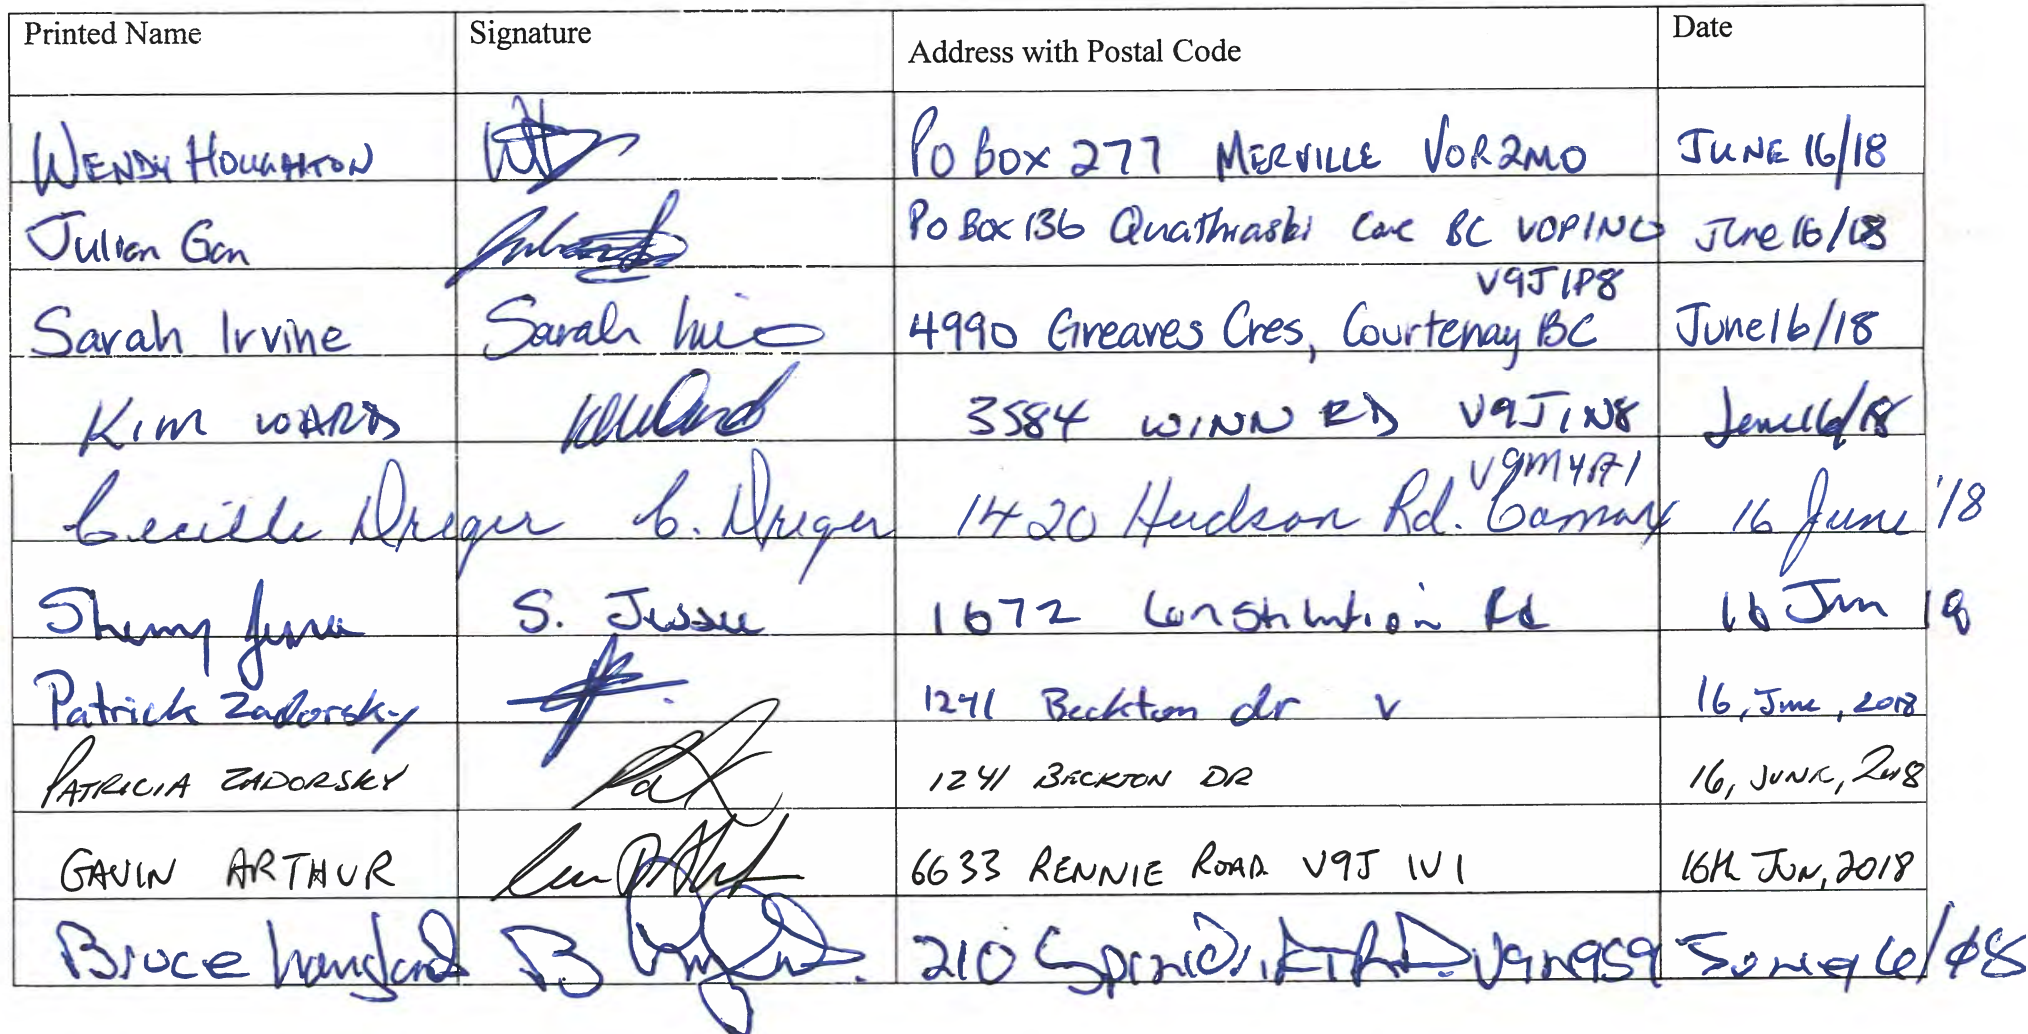 Printed Name Signature Address with Postal Code Date
WENDY HOUGHTON PO BOX 277 MERVILLE V0R2M0 JUNE 16/18
Julian Gan PO Box 136 Quathiaski Cove BC V0P1N0 June 16/18
V9J1P8
Sarah Irvine Sarah 4990 Greaves Cres, Courtenay BC June 16/18
KIM WARD K Ward 3584 WINN RD V9J1N8 June 16/18
V9M4A1
Cecille Dreger C. Dreger 1420 Hudson Rd. Comox 16 June '18
Sherry S. 1672 Constitution Rd 16 Jun 18
Patrick Zadorsky 1241 Beckton dr V 16, June, 2018
PATRICIA ZADORSKY Pat 1241 BECKTON DR 16, JUNE, 2018
GAVIN ARTHUR 6633 RENNIE ROAD V9J 1V1 16th JUN, 2018
Bruce B 210 V9N9S9